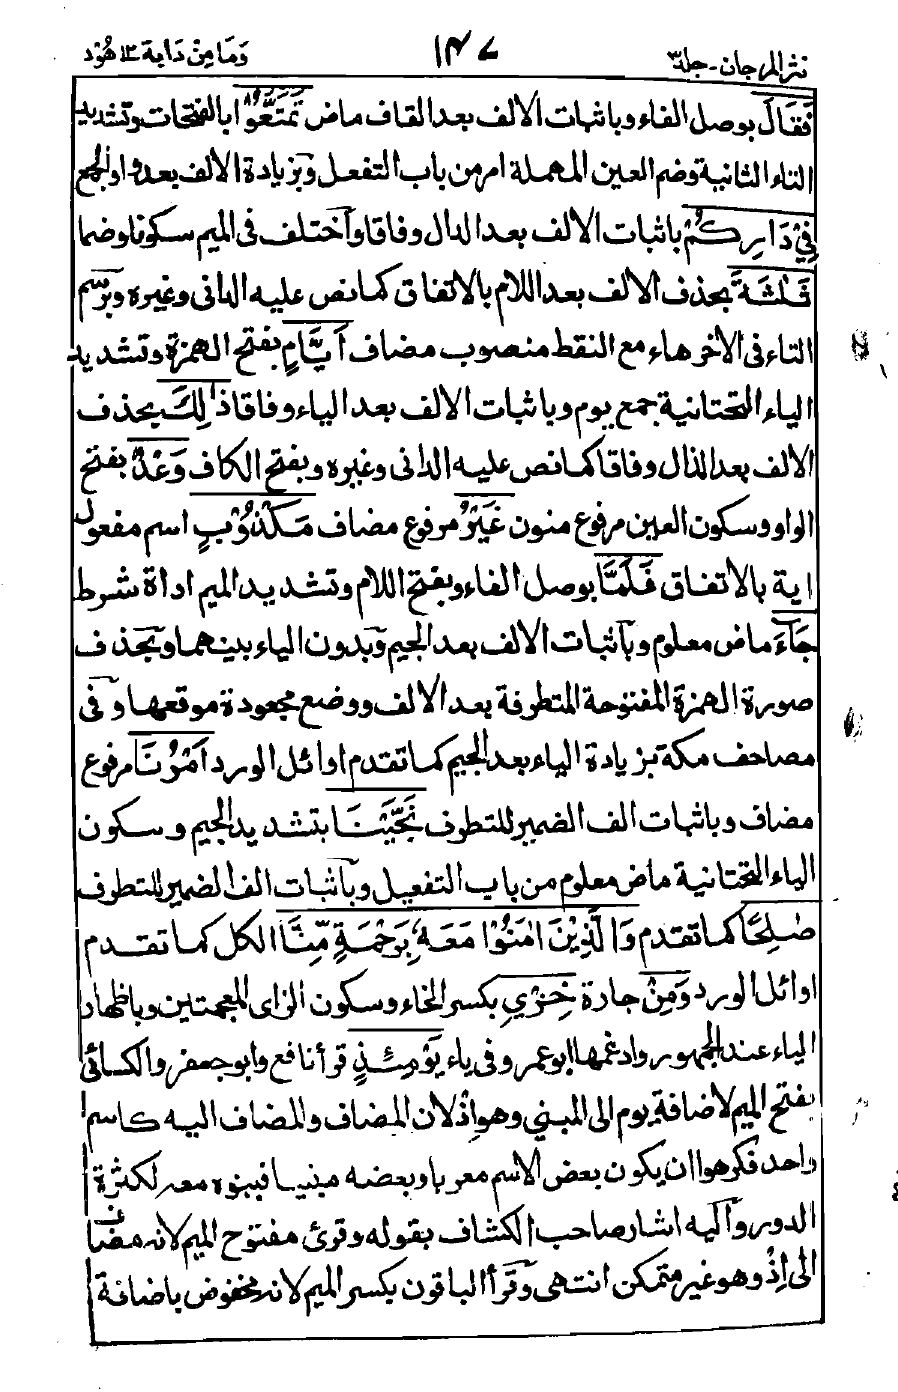 نثر المرجان - جلد٣ ١٤٧ وَمَا مِنْ دَابة ١٢ هُوْد
فَقَالَ بوصل الفاء وباثبات الالف بعد القاف ماض تَمَتَّعُوْا بالفتحات وتشديد
التاء الثانية وضم العين المهملة امر من باب التفعل وبزيادة الالف بعد واو الجمع
فِيْ دَارِكُمْ باثبات الالف بعد الدال وفاقا واختلف فى الميم سكونا وضما
ثَلٰثَةَ بحذف الالف بعد اللام بالاتفاق كما نص عليه الدانى وغيره وبرسم
التاء فى الاخر هاء مع النقط منصوب مضاف اَيَّامٍ بفتح الهمزة وتشديد
الياء التحتانية جمع يوم وباثبات الالف بعد الياء وفاقا ذٰلِكَ بحذف
الالف بعد الذال وفاقا كما نص عليه الدانى وغيره وبفتح الكاف وَعْدٌ بفتح
الواو وسكون العين مرفوع منون غَيْرُ مرفوع مضاف مَكْذُوْبٍ اسم مفعول
اية بالاتفاق فَلَمَّا بوصل الفاء وبفتح اللام وتشديد الميم اداة شرط
جَاءَ ماض معلوم وباثبات الالف بعد الجيم وبدون الياء بينهما وبحذف
صورة الهمزة المفتوحة المتطرفة بعد الالف ووضع مجعودة موقعها وفى
مصاحف مكة بزيادة الياء بعد الجيم كما تقدم اوائل الورد اَمْرُنَا مرفوع
مضاف وباثبات الف الضمير للتطرف نَجَّيْنَا بتشديد الجيم وسكون
الياء التحتانية ماض معلوم من باب التفعيل وباثبات الف الضمير للتطرف
صٰلِحًا كما تقدم وَالَّذِيْنَ اٰمَنُوْا مَعَهٗ بِرَحْمَةٍ مِّنَّا الكل كما تقدم
اوائل الورد وَمِنْ جارة خِزْيِ بكسر الخاء وسكون الزاى المعجمتين وباظهار
الياء عند الجمهور وادغمها ابو عمر وفى ياء يَوْمِئِذٍ قرأ نافع وابو جعفر والكسائى
بفتح الميم لاضافة يوم الى المبني وهو اِذْ لان المضاف والمضاف اليه كاسم
واحد فكرهوا ان يكون بعض الاسم معربا وبعضه مبنيا فبنوه معه لكثرة
الدور واليه اشار صاحب الكشاف بقوله وقرئ مفتوح الميم لانه مضاف
الى اِذْ وهو غير متمكن انتهى وقرأ الباقون بكسر الميم لانه مخفوض باضافة